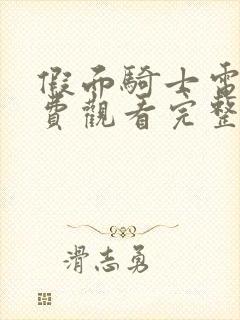 假面騎士電
費觀看完整
滑志勇